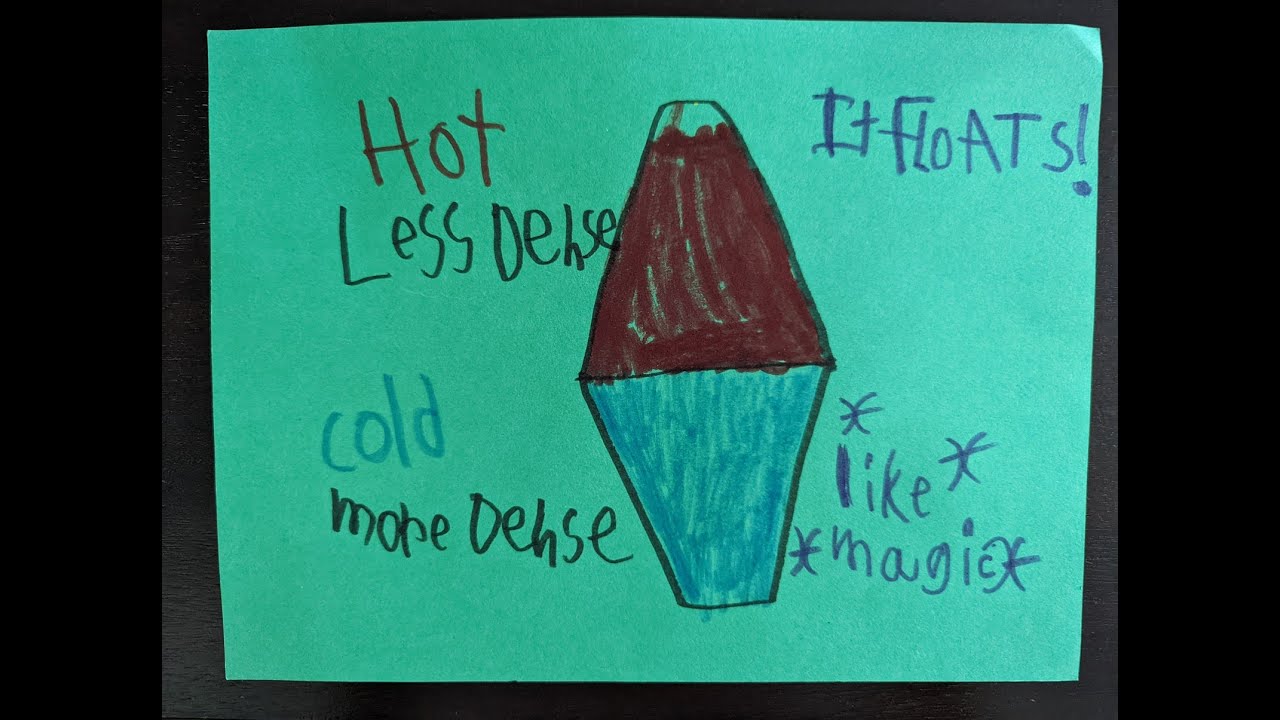 Hot
Less Dense
It FLOATS!
cold
more Dense
*
like *
* magic *